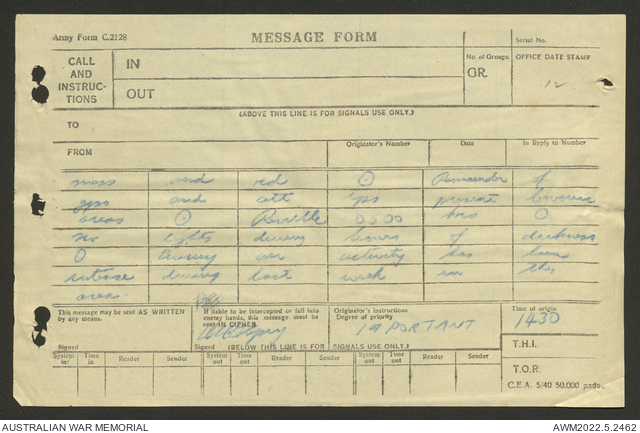 Army Form C.2128
MESSAGE FORM
Serial No.
CALL AND INSTRUC- TIONS
IN
OUT
No. of Groups.
GR.
OFFICE DATE STAMP
12
(ABOVE THIS LINE IS FOR SIGNALS USE ONLY.)
TO
FROM
Originator's Number
Date
In Reply to Number
and red Remainder of
gps and att gps
areas Reveille 0500 hrs
no lights during hours of darkness
Enemy air activity has been
intense during last week in this
area.
This message may be sent AS WRITTEN by any means.
Signed
If liable to be intercepted or fall into enemy hands, this message must be sent IN CIPHER.
Signed
Originator's Instructions
Degree of priority
IMPORTANT
Time of origin.
1430
(BELOW THIS LINE IS FOR SIGNALS USE ONLY.)
T.H.I.
System in
Time in
Reader
Sender
System out
Time out
Reader
Sender
System out
Time out
Reader
Sender
T.O.R.
C.E.A. 5/40 50,000 pads.
AUSTRALIAN WAR MEMORIAL
AWM2022.5.2462